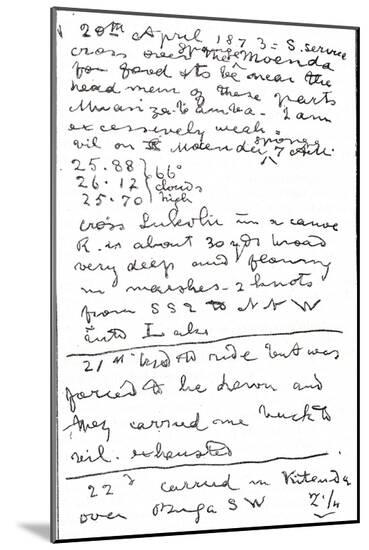 20th April 1873 = S. service
cross over the sponge Moenda
for food & to be near the
head men of these parts
Muanzabamba. I am
excessively weak =
vil on Moenda sponge 7 AM.
25.88
26.12 66°
25.70 clouds high
cross Lukolu in a canoe
R. is about 30 yds broad
very deep and flowing
in marshes - 2 knots
from SSE to NNW
into Lake
21st tried to ride but was
forced to lie down and
they carried me back to
vil. exhausted
22d carried in Kitanda
over Buga SW 2 1/4